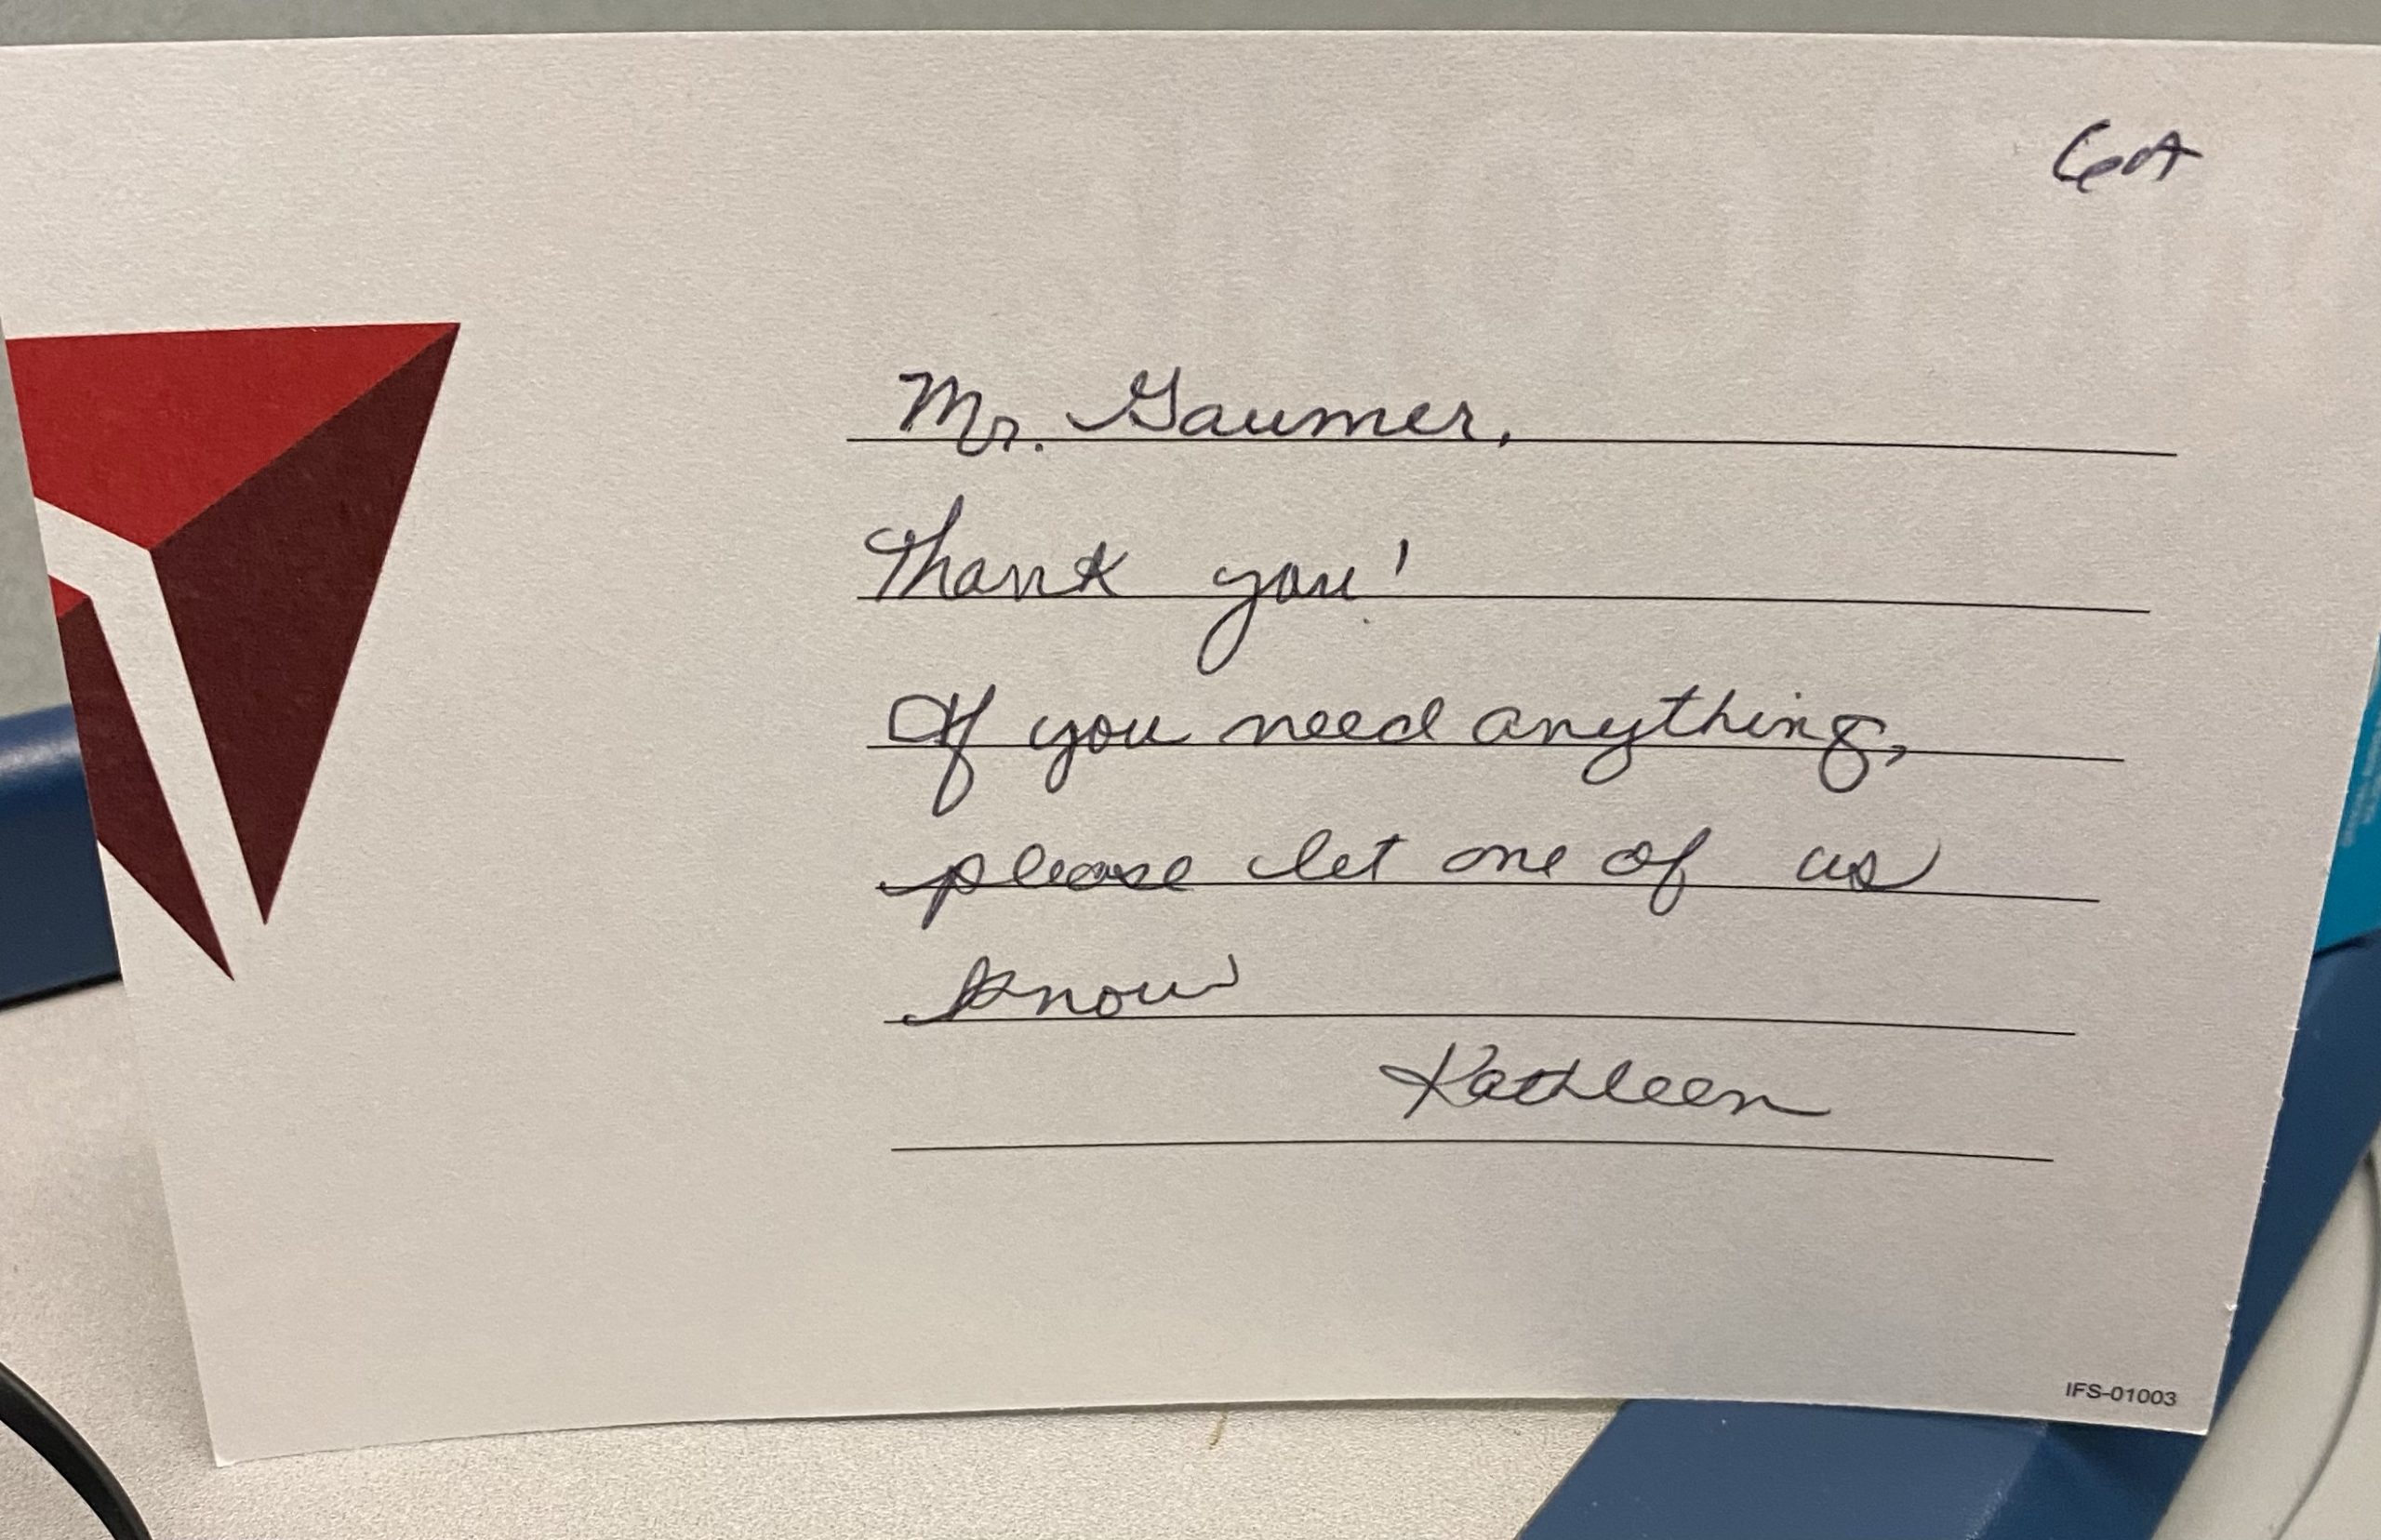 6A
Mr. Gaumer,
Thank you!
If you need anything,
please let one of us
know
Kathleen
IFS-01003